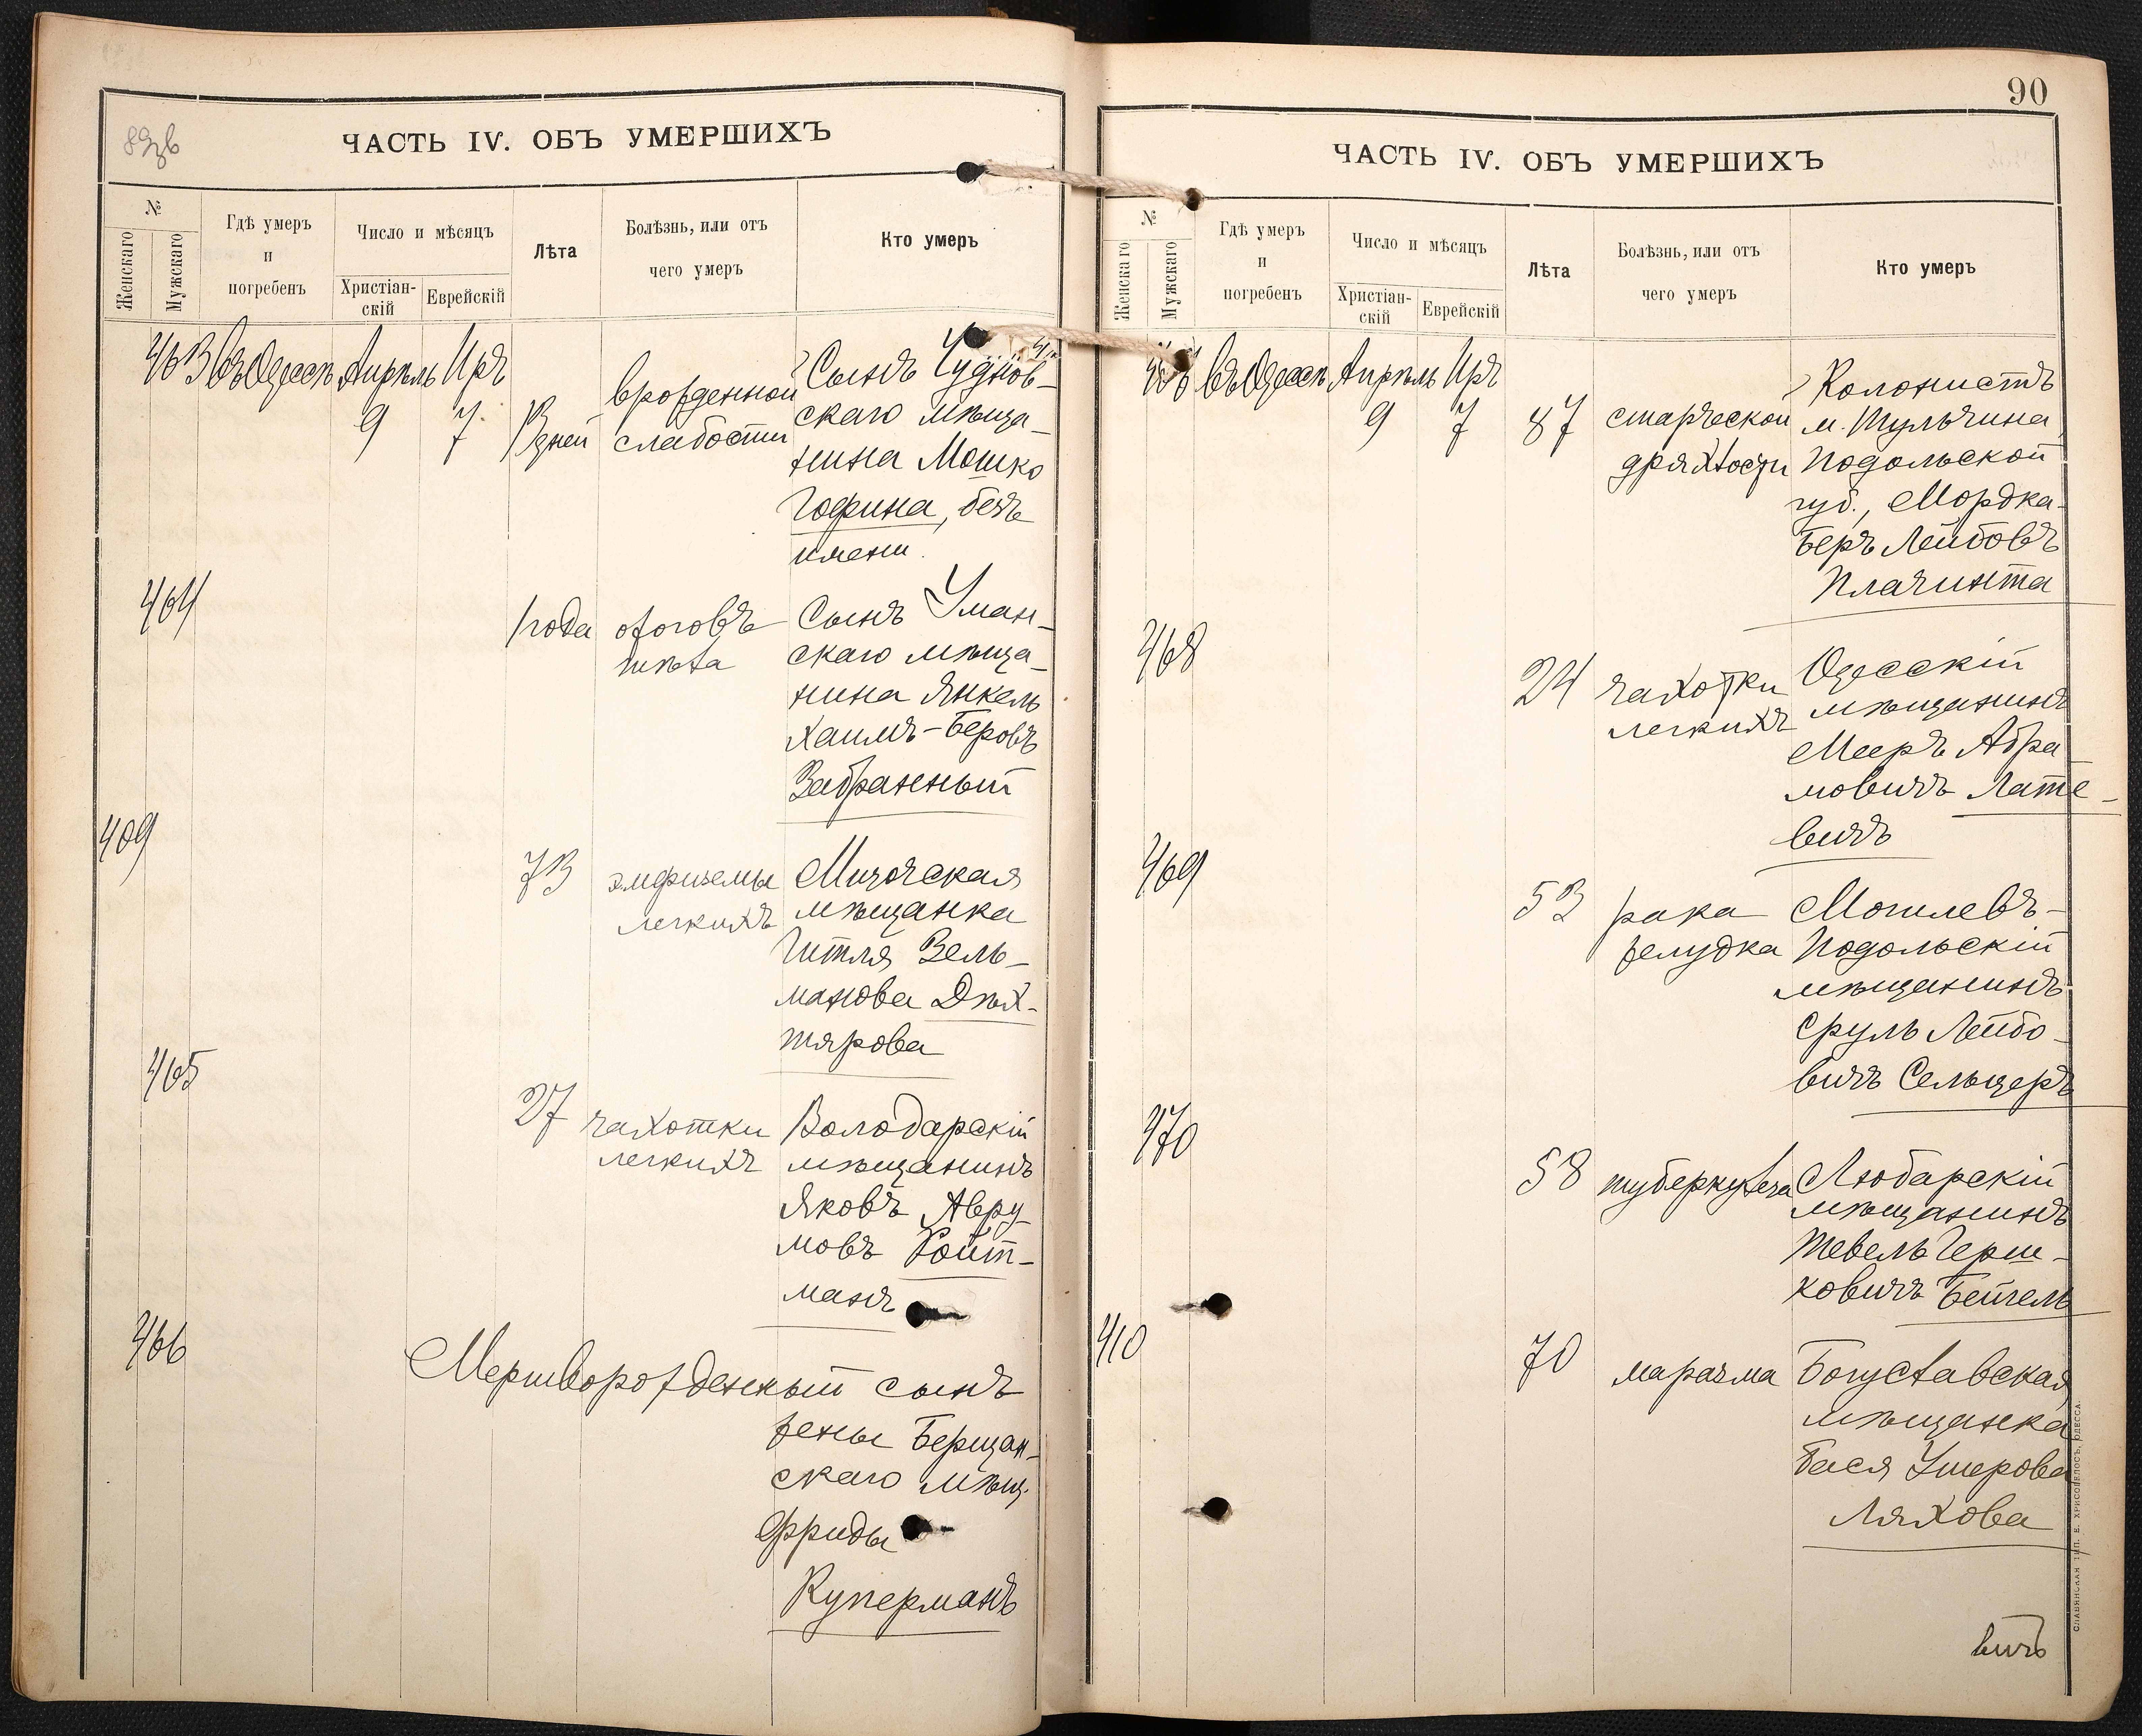 89зв
ЧАСТЬ IV. ОБЪ УМЕРШИХЪ
№
Женскаго
Мужскаго
Гдѣ умеръ
и
погребенъ
Число и мѣсяцъ
Христіан-
скій
Еврейскій
Лѣта
Болѣзнь, или отъ
чего умеръ
Кто умеръ
463 въ Одессѣ Апрѣль Иръ
9 7 13 дней
врожденной
слабости
Сынъ Чуднов-
скаго мѣща-
нина Мошко
Гофина, безъ
имени.
464
1 года ожоговъ
тѣла
Сынъ Уман-
скаго мѣща-
нина Янкель
Хаимъ-Беровъ
Забранный
409
73 эмфиземы
легкихъ
Мизочская
мѣщанка
Гитля Зель-
манова Дѣх-
тярова
465
27 чахотки
легкихъ
Володарскій
мѣщанинъ
Яковъ Авру-
мовъ Ройт-
манъ
466
Мертворожденный сынъ
жены Бершад-
скаго мѣщ.
Фриды
Куперманъ
90
ЧАСТЬ IV. ОБЪ УМЕРШИХЪ
№
Женскаго
Мужскаго
Гдѣ умеръ
и
погребенъ
Число и мѣсяцъ
Христіан-
скій
Еврейскій
Лѣта
Болѣзнь, или отъ
чего умеръ
Кто умеръ
въ Одессѣ Апрѣль Иръ
9 7 87
старческой
дряхлости
Колонистъ
м. Тульчина,
Подольской
губ., Мордка-
Беръ Лейбовъ
Плачинта
468
24 чахотки
легкихъ
Одесскій
мѣщанинъ
Мееръ Абра-
мовичъ Лате-
вичъ
469
53 рака
желудка
Могилевъ-
Подольскій
мѣщанинъ
Сруль Лейбо-
вичъ Сельцеръ
470
58 туберкулеза
Любарскій
мѣщанинъ
Тевель Герш-
ковичъ Бейгель
410
70 маразма
Богуславская
мѣщанка
Бася Ушерова
Ляхова
вичъ
СЛАВЯНСКАЯ ТИП. Е. ХРИСОГЕЛОСЪ, ОДЕССА.